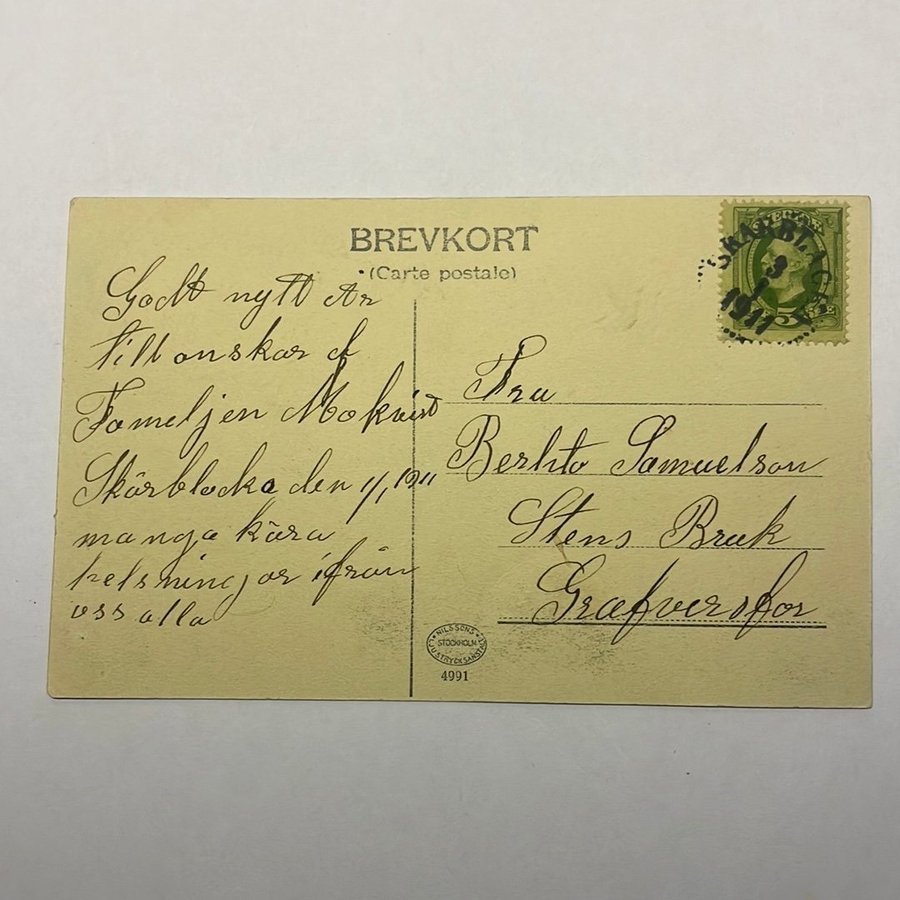 BREVKORT
(Carte postale)
Godt nytt År
tillönskar af
Fameljen Mokvist
Skärblacka den 1/1 1911
manga kära
helsningar ifrån
oss alla
Fru
Berhta Samuelson
Stens Bruk
Grafversfor
SVERIGE
SKÄRBLACKA
3
1
1911
NILSSONS
STOCKHOLM
LJUSTRYCKSANSTALT
4991